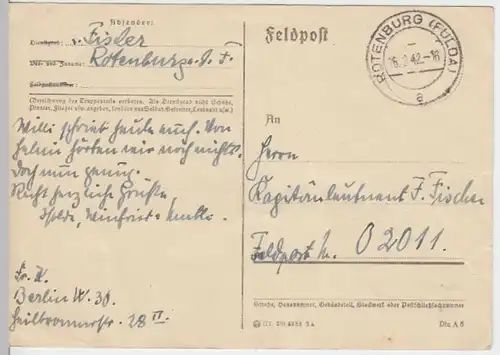 Absender:
Dienstgrad: Fischer
Vor- und Zuname: Rotenburg a. d. F.
Feldpostnummer:
(Bezeichnung des Truppenteils verboten. Als Dienstgrad nicht Schütze,
Pionier, Flieger usw. angeben, sondern nur Soldat, Gefreiter, Leutnant usw.)
Willi schrieb heute auch. Von
hörten wir noch nichts.
Doch nun genug.
Recht herzliche Grüße
Isolde, Winfried
Berlin W. 30.
Heilbronnerstr. 28 II
Feldpost
ROTENBURG (FULDA)
42-18
a
An
Herrn
Kapitänleutnant F. Fischer
Feldpost Nr. 02011.
Straße, Hausnummer, Gebäudeteil, Stockwerk oder Postschließfachnummer
Din A 6